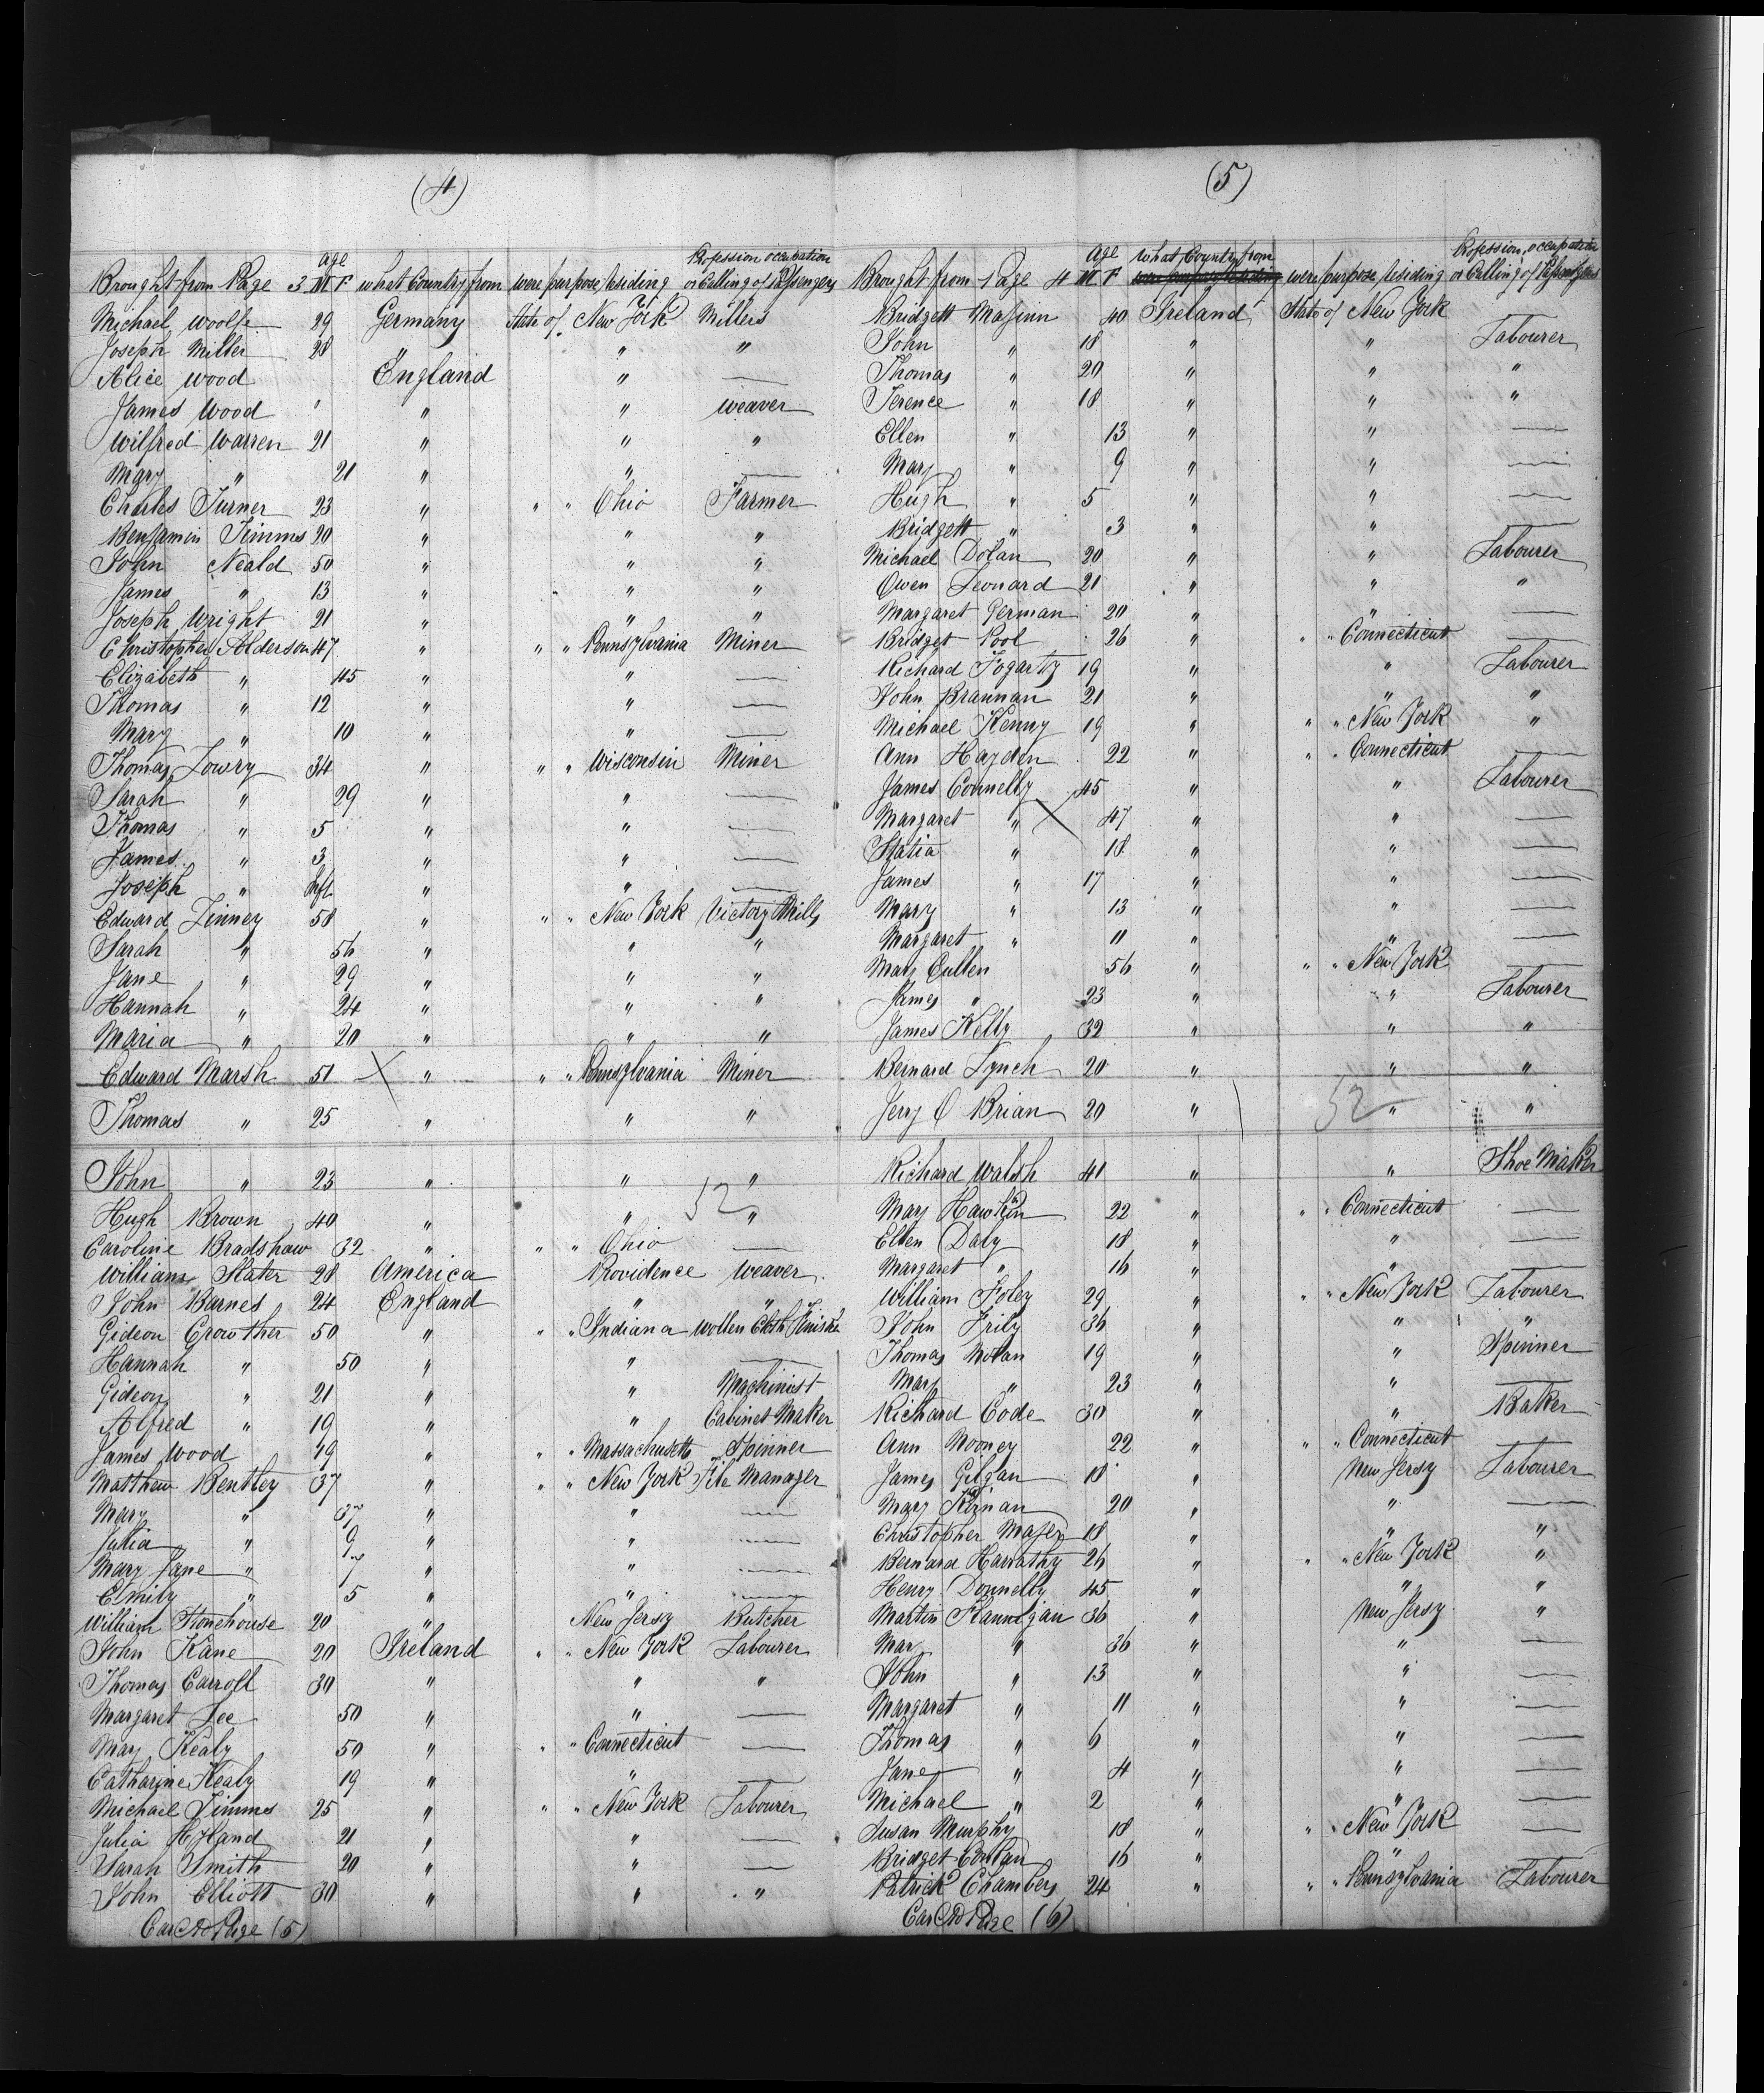 (4)
Age Profession occupation
Brought from Page 3 M F what Country from were purpose residing or Calling of Passengers
Michael Woolfe 29 Germany State of New York Millers
Joseph Miller 28 " " "
Alice Wood England " —
James Wood " " " Weaver
Wilfred Warren 21 " " "
Mary " 21 " " —
Charles Turner 23 " " " Ohio Farmer
Benjamin Timms 20 " " "
John Neald 50 " " "
James " 13 " " "
Joseph Wright 21 " " "
Christopher Alderson 47 " " " Pennsylvania Miner
Elizabeth " 45 " " —
Thomas " 12 " " —
Mary " 10 " " —
Thomas Lowry 34 " " " Wisconsin Miner
Sarah " 29 " " —
Thomas " 5 " " —
James " 3 " " —
Joseph " Inft " " —
Edward Linney 58 " " " New York Victory Mills
Sarah " 56 " " "
Jane " 29 " " "
Hannah " 24 " " "
Maria " 20 " " "
Edward Marsh 51 X " " " Pennsylvania Miner
Thomas " 25 " " "
John " 23 " " "
52
Hugh Brown 40 " " "
Caroline Bradshaw 32 " " " Ohio —
William Slater 28 America Providence Weaver
John Barnes 24 England " "
Gideon Crowther 50 " " " Indiana Wollen Cloth
Hannah " 50 " " —
Gideon " 21 " " Machinist
Alfred " 19 " " Cabinet Maker
James Wood 49 " " " Massachusetts Spinner
Matthew Bentley 37 " " " New York File Manager
Mary " 37 " " —
Julia " 9 " " —
Mary Jane " 7 " " —
Emily " 5 " " —
William Stonehouse 20 " New Jersy Butcher
John Kane 20 Ireland " " New York Labourer
Thomas Carroll 30 " " "
Margaret Lee 50 " " —
Mary Kealy 50 " " " Connecticut —
Catharine Kealy 19 " " —
Michael Timmes 25 " " " New York Labourer
Julia Hyland 21 " " —
Sarah Smith 20 " " —
John Elliott 30 " " "
Car Page (5)
(5)
Age what Country from Profession, occupation
Brought from Page 4 M F were purpose residing or Calling of Passengers
Bridgett Maginn 40 Ireland State of New York
John " 18 " " Labourer
Thomas " 20 " " "
Terence " 18 " " "
Ellen " 13 " " —
Mary " 9 " " —
Hugh " 5 " " —
Bridgett " 3 " " —
Michael Dolan 20 " " Labourer
Owen Leonard 21 " " "
Margaret German 20 " " —
Bridget Pool 26 " " " Connecticut —
Richard Fogarty 19 " " Labourer
John Brannan 21 " " "
Michael Kenny 19 " " " New York "
Ann Hayden 22 " " " Connecticut —
James Connelly 45 " " Labourer
Margaret " X 47 " " —
Statia " 18 " " —
James " 17 " " —
Mary " 13 " " —
Margaret " 11 " " —
Mary Cullen 56 " " " New York —
James " 23 " " Labourer
James Kelly 32 " " "
Bernard Lynch 20 " " "
Jerry O Brian 20 " 52 " "
Richard Walsh 41 " " Shoe Maker
Mary Hawkin 22 " " " Connecticut —
Ellen Daly 18 " " —
Margaret " 16 " " —
William Foley 29 " " " New York Labourer
John 36 " " "
Thomas 19 " " Spinner
Mary " 23 " " —
Richard Code 30 " " Baker
Ann Mooney 22 " " " Connecticut —
James Gilgan 18 " New Jersy Labourer
Mary Kernan 20 " " —
Christopher 18 " " "
Bernard 26 " " " New York "
Henry Donnelly 45 " " "
Martin Flannigan 36 " New Jersy "
Mary " 36 " " —
John " 13 " " —
Margaret " 11 " " —
Thomas " 6 " " —
Jane " 4 " " —
Michael " 2 " " —
Susan Murphy 18 " " " New York —
Bridget 16 " " —
Patrick Chambers 24 " " " Pennsylvania Labourer
Car Page (6)